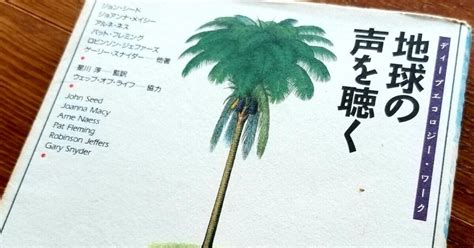 ディープエコロジー・ワーク
地球の
声を聴く
ジョン・シード
ジョアンナ・メイシー
アルネ・ネス
パット・フレミング
ロビンソン・ジェファーズ
ゲーリー・スナイダー 他著
星川 淳 監訳
ウェッブ・オブ・ライフ 協力
John Seed
Joanna Macy
Arne Naess
Pat Fleming
Robinson Jeffers
Gary Snyder